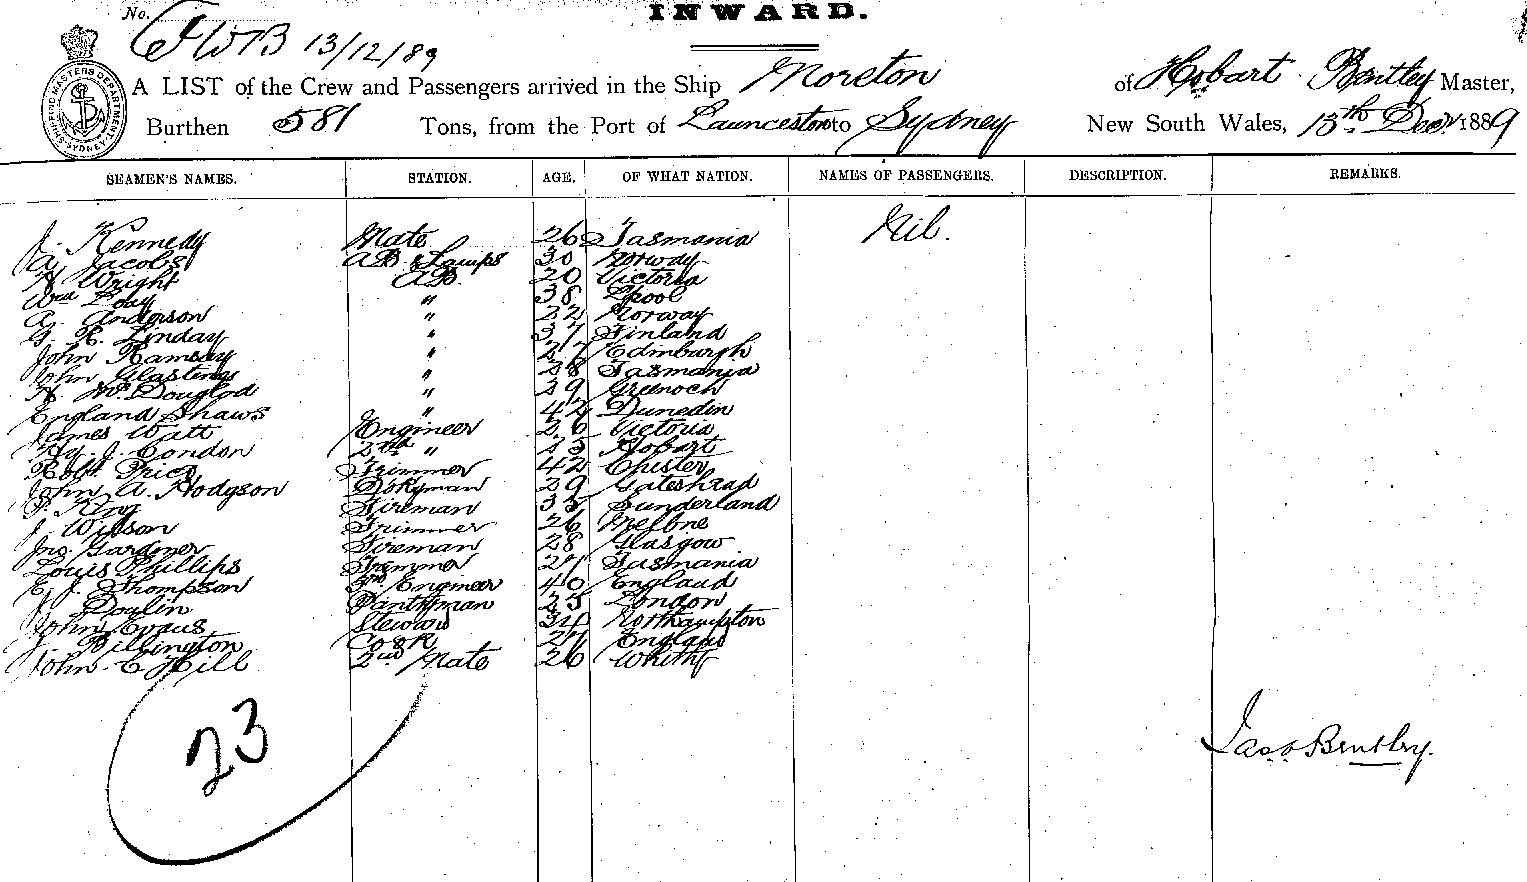 INWARD.
No.
FWB 13/12/89
SHIPPING MASTERS DEPARTMENT SYDNEY
A LIST of the Crew and Passengers arrived in the Ship Moreton of Hobart Bentley Master,
Burthen 581 Tons, from the Port of Launceston to Sydney New South Wales, 13th Decr 1889
SEAMEN'S NAMES. STATION. AGE. OF WHAT NATION. NAMES OF PASSENGERS. DESCRIPTION. REMARKS.
J. Kennedy Mate 26 Tasmania Nil.
A. Jacobs AB & Lamps 30 Norway
H Wright AB. 20 Victoria
Wm " 38 Lpool
A. Anderson " 22 Norway
G. R. Linday " 37 Finland
John Ramsay " 27 Edinburgh
John Glasting " 28 Tasmania
H Mc Douglod " 29 Greenoch
England Shaws " 42 Dunedin
James Watt Engineer 26 Victoria
Hy. J. Condon 2nd " 25 Hobart
Robt. Price Trimmer 42 Chester
John A. Hodgson Dokyman 29 Gateshead
P. King Fireman 35 Sunderland
J. Wilson Trimmer 26 Melbne
Jno. Gardner Fireman 28 Glasgow
Louis Phillips Trimmer 27 Tasmania
E. J. Thompson 3rd Engineer 40 England
J. Doulin Pantryman 25 London
John Evans Steward 34 Northampton
J. Billington Cook 27 England
John C Hill 2nd Mate 26 Whitby
23
Jas Bentley.